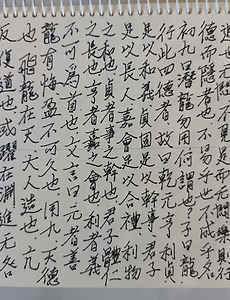 反復道也或躍在淵進无咎
也飛龍在天大人造也亢
龍有悔盈不可久也用九天德
不可為首也文言曰元者善
之長也亨者嘉之會也利者義
之和也貞者事之幹也君子體仁
足以長人嘉會足以合禮利物
足以和義貞固足以幹事君子
行此四德者故曰乾元亨利貞
初九曰潛龍勿用何謂也子曰龍
德而隱者也不易乎世不成乎名
遯世无悶不見是而无悶樂則行